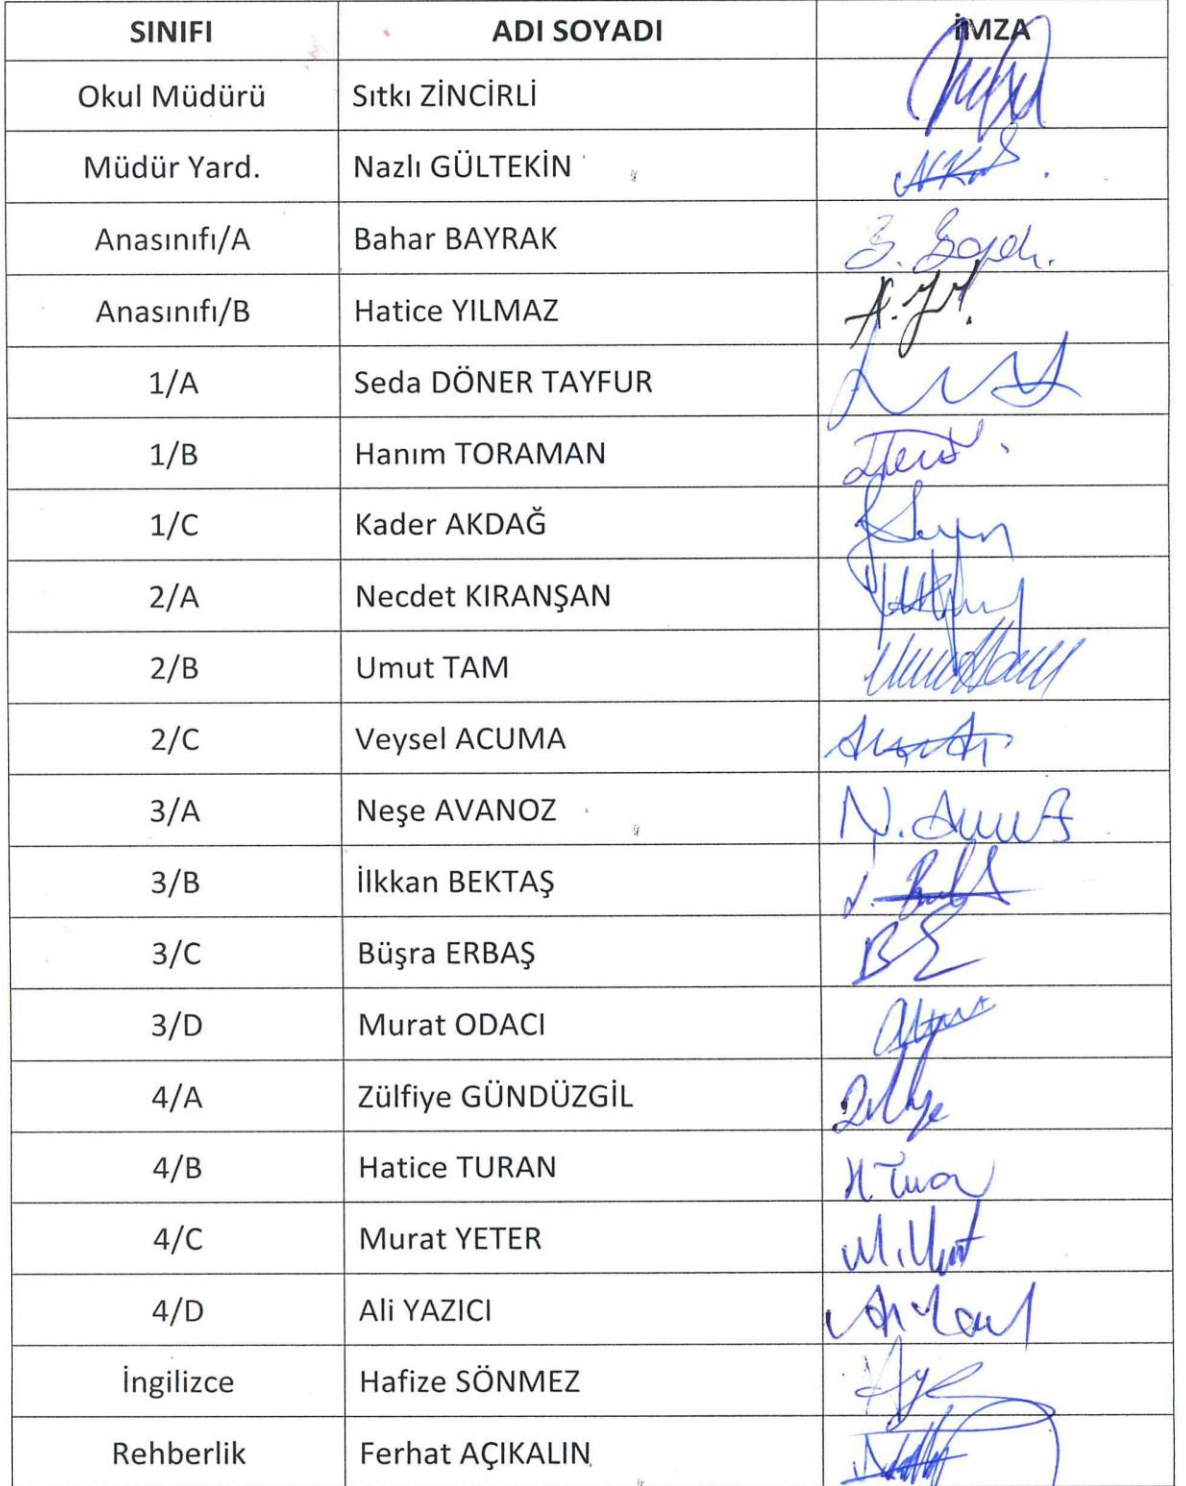 SINIFI ADI SOYADI İMZA
Okul Müdürü Sıtkı ZİNCİRLİ
Müdür Yard. Nazlı GÜLTEKİN
Anasınıfı/A Bahar BAYRAK
Anasınıfı/B Hatice YILMAZ
1/A Seda DÖNER TAYFUR
1/B Hanım TORAMAN
1/C Kader AKDAĞ
2/A Necdet KIRANŞAN
2/B Umut TAM
2/C Veysel ACUMA
3/A Neşe AVANOZ
3/B İlkkan BEKTAŞ
3/C Büşra ERBAŞ
3/D Murat ODACI
4/A Zülfiye GÜNDÜZGİL
4/B Hatice TURAN
4/C Murat YETER
4/D Ali YAZICI
İngilizce Hafize SÖNMEZ
Rehberlik Ferhat AÇIKALIN